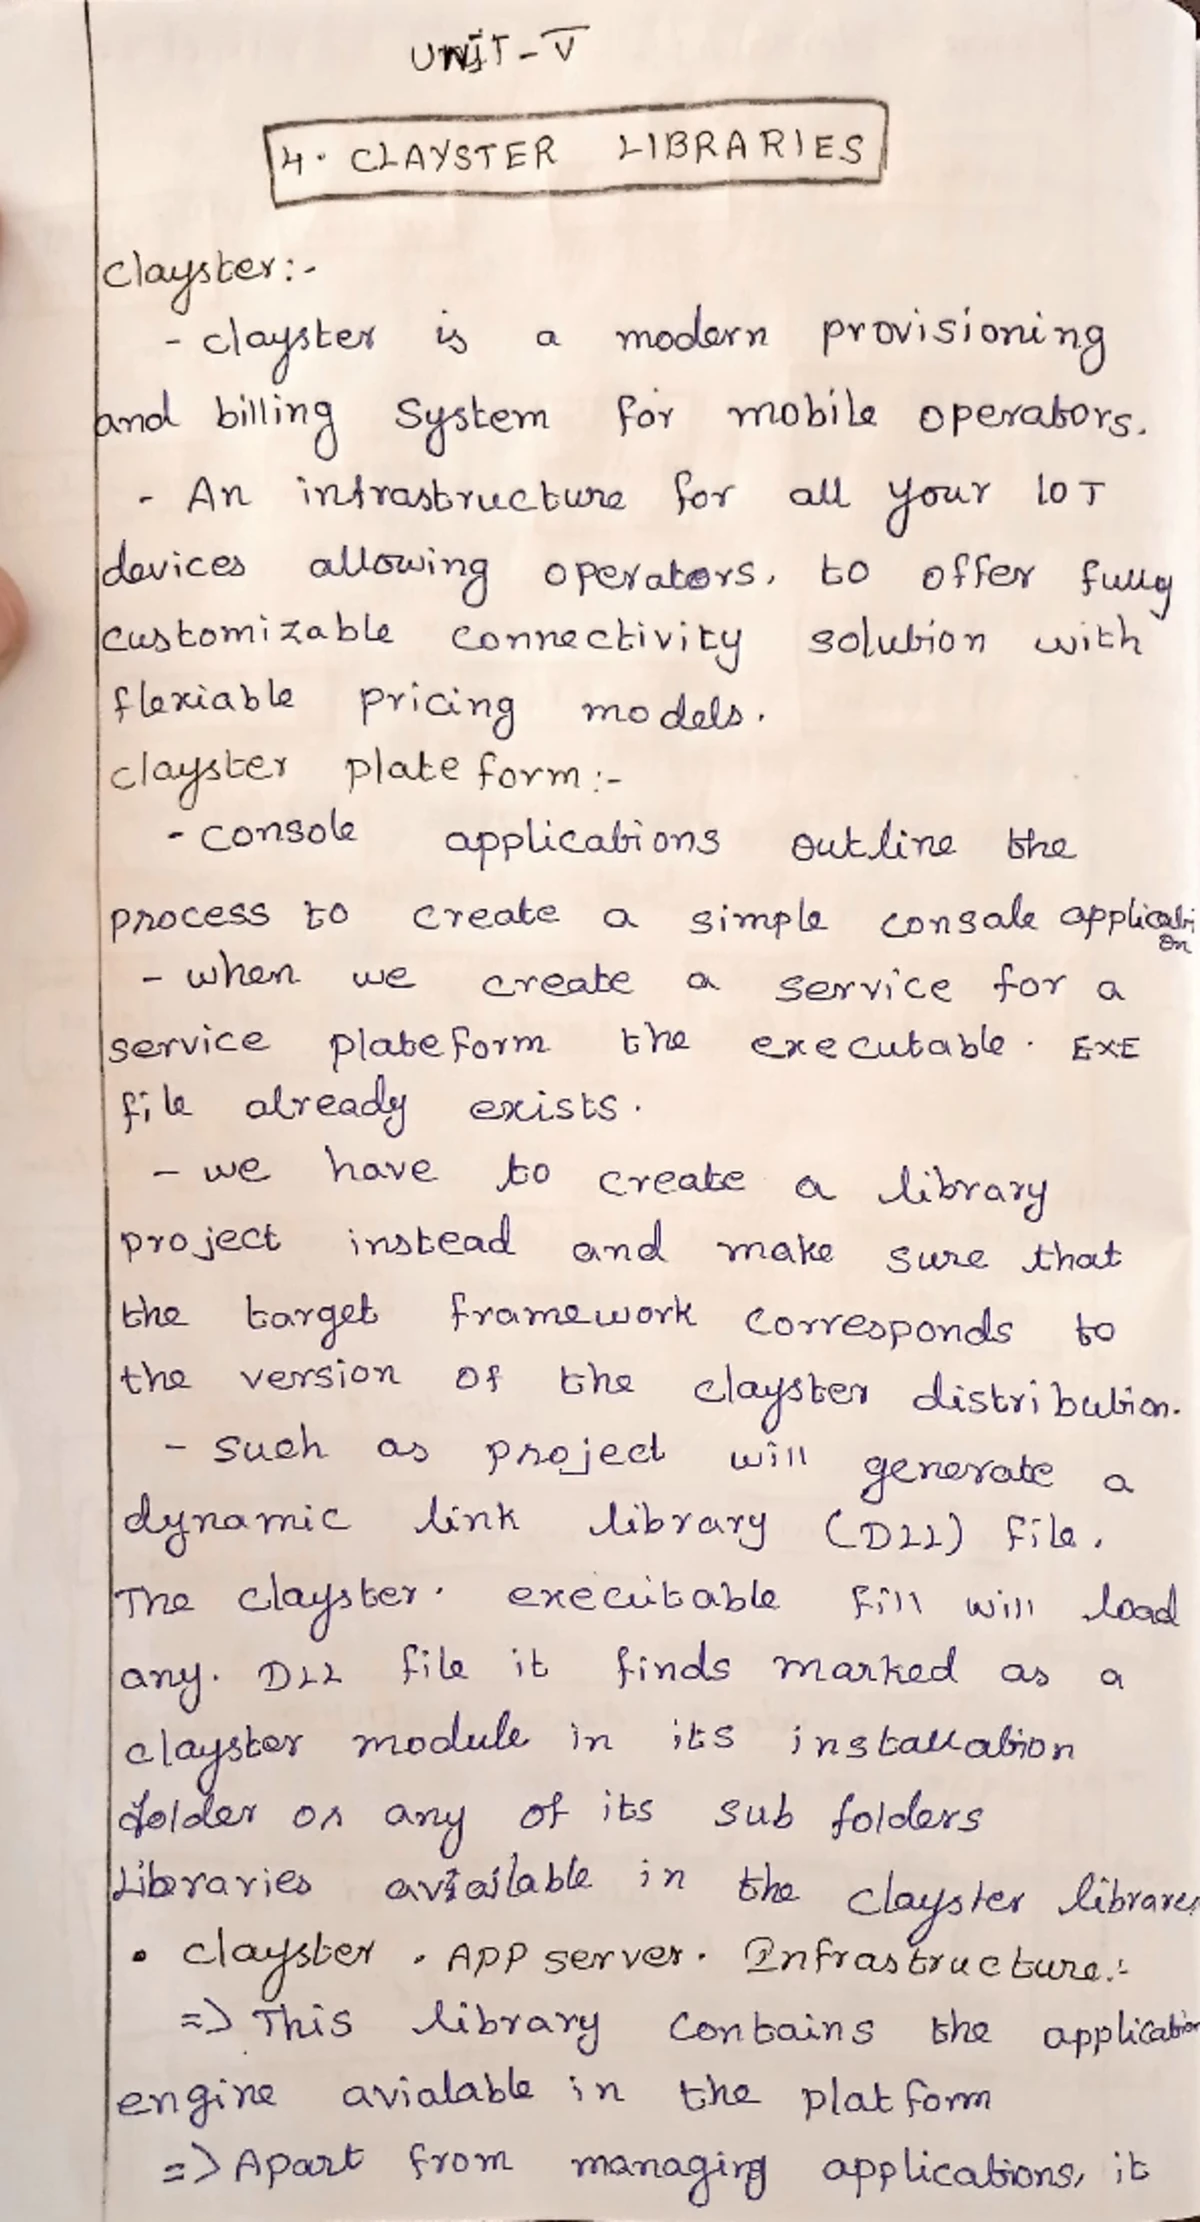 UNIT-V
4. CLAYSTER LIBRARIES
clayster:-
- clayster is a modern provisioning
and billing System for mobile operators.
- An infrastructure for all your IOT
devices allowing operators. to offer fully
customizable connectivity solution with
flexiable pricing models.
clayster plate form:-
- console applications outline the
process to create a simple consale application
- when we create a service for a
service plateform the executable. EXE
file already exists.
- we have to create a library
project instead and make sure that
the target framework corresponds to
the version of the clayster distribution.
- such as project will generate a
dynamic link library (DLL) file.
The clayster. executable fill will load
any. DLL file it finds marked as a
clayster module in its installation
folder or any of its sub folders
Libraries available in the clayster libraries
• clayster . APP server. Infrastructure.:-
=> This library contains the application
engine avialable in the platform
=> Apart from managing applications, it